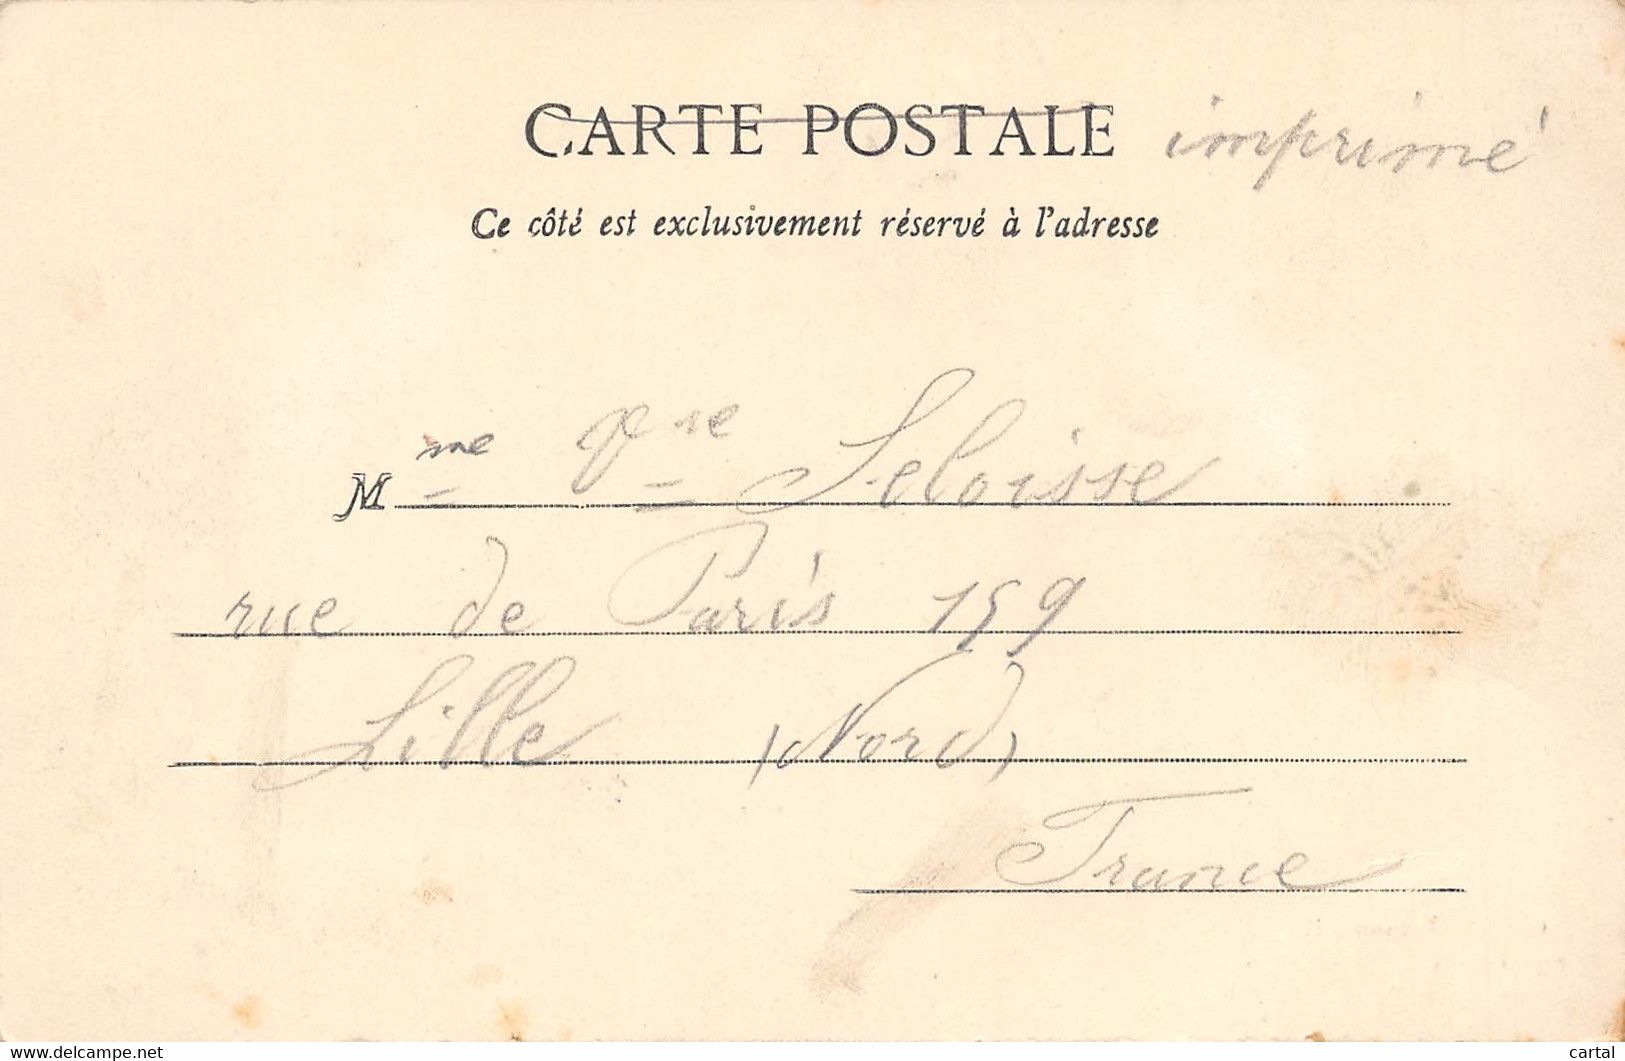 CARTE POSTALE imprimé
Ce côté est exclusivement réservé à l'adresse
Mme Seloisse
rue de Paris 159
Lille (Nord)
France
www.delcampe.net
cartal